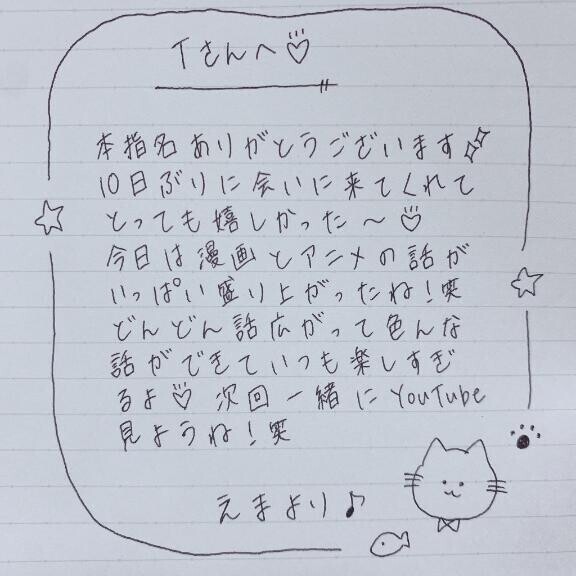 Tさんへ♡
本指名ありがとうございます
10日ぶりに会いに来てくれて
とっても嬉しかった〜♡
今日は漫画とアニメの話が
いっぱい盛り上がったね!笑
どんどん話広がって色んな
話ができていつも楽しすぎ
るよ♡ 次回一緒にYouTube
見ようね!笑
えまより♪